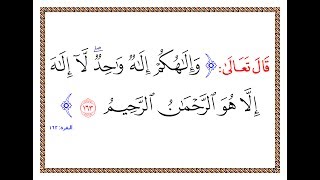 قَالَ تَعَالَىٰ: ﴿ وَإِلَٰهُكُمْ إِلَٰهٌ وَٰحِدٌ ۖ لَّآ إِلَٰهَ
إِلَّا هُوَ ٱلرَّحْمَٰنُ ٱلرَّحِيمُ ١٦٣ ﴾
البقرة: ١٦٣